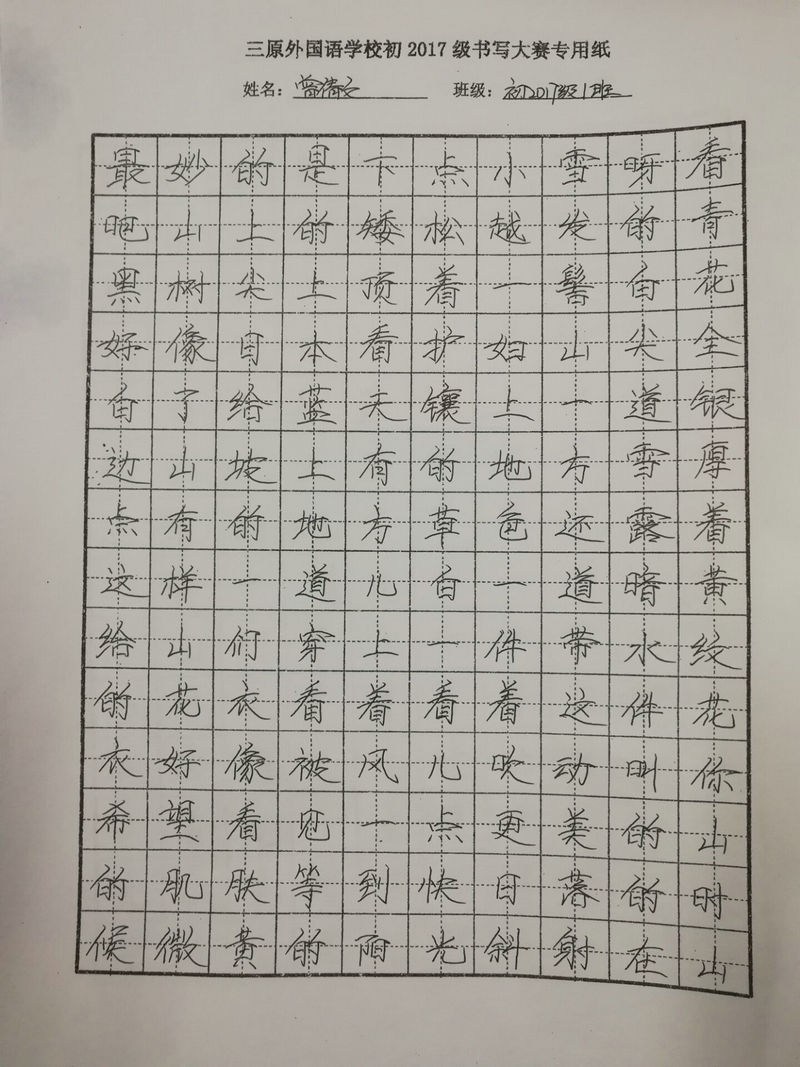 三原外国语学校初2017级书写大赛专用纸
姓名：曾倩文 班级：初2017级1班
最妙的是下点小雪呀看
吧山上的矮松越发的青
黑树尖上顶着一髻白花
好像日本看护妇山尖全
白了给蓝天镶上一道银
边山坡上有的地方雪厚
点有的地方草色还露着
这样一道儿白一道暗黄
给山们穿上一件带水纹
的花衣看着看着这件花
衣好像被风儿吹动叫你
希望看见一点更美的山
的肌肤等到快日落的时
候微黄的阳光斜射在山